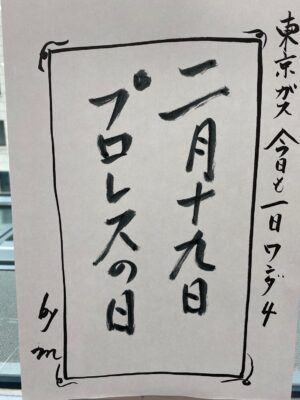 東京ガス 今日も一日ワンダ4
二月十九日
プロレスの日
by m